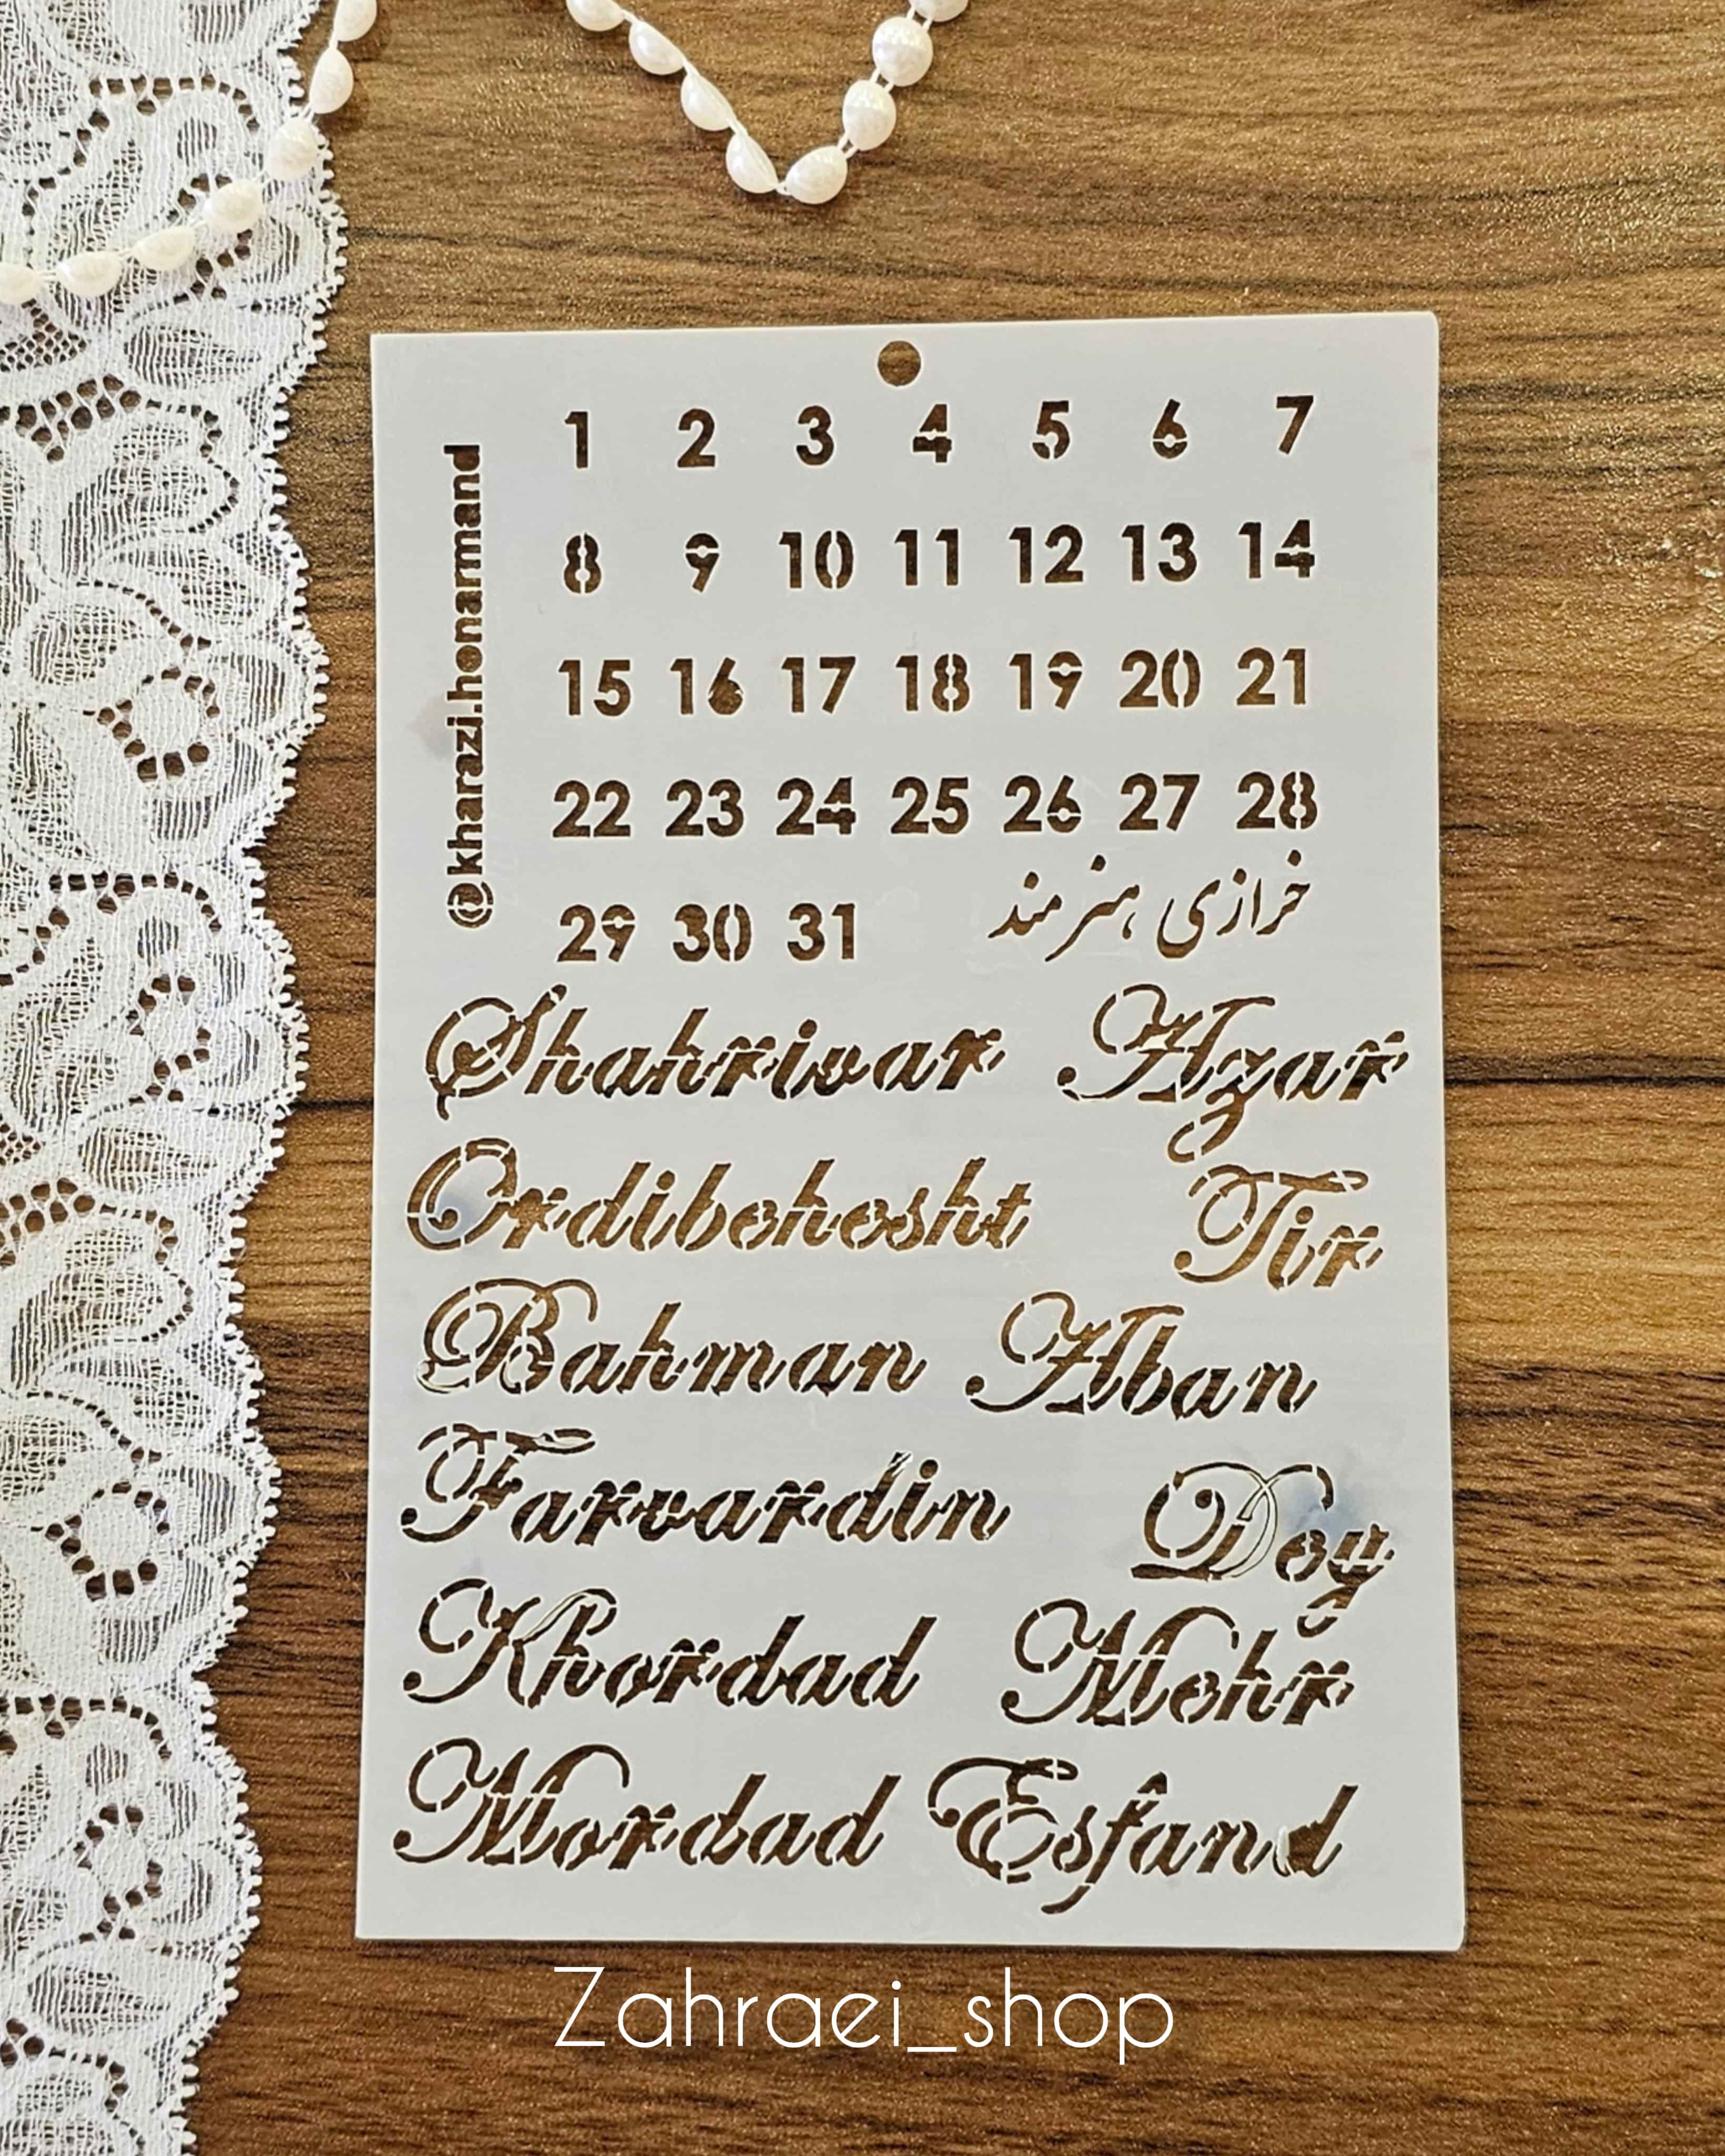 1 2 3 4 5 6 7
8 9 10 11 12 13 14
15 16 17 18 19 20 21
22 23 24 25 26 27 28
29 30 31
خرازی هنرمند
@kharazi.honarmand
Shahrivar Azar
Ordibehesht Tir
Bahman Aban
Farvardin Dey
Khordad Mehr
Mordad Esfand
Zahraei_shop